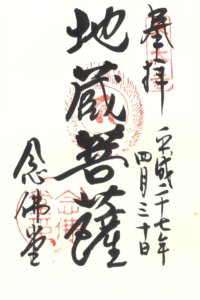 奉拝
平成二十七年
四月三十日
地蔵菩薩
念佛堂